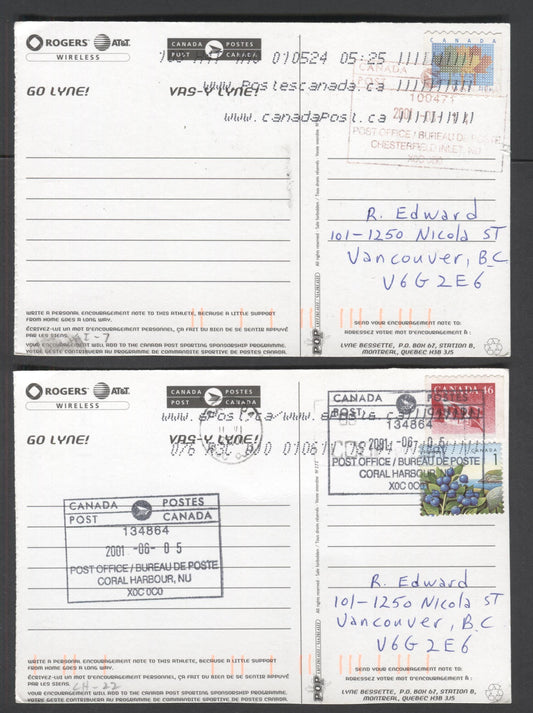 ROGERS AT&T
WIRELESS
CANADA POSTES
POST CANADA
010524 05:25
www.Postescanada.ca
www.canadaPost.ca
GO LYNE!
VAS-Y LYNE!
CANADA
CANADA
POST
100471
2001
POST OFFICE / BUREAU DE POSTE
CHESTERFIELD INLET, NU
X0C 0B0
R. Edward
101-1250 Nicola ST
Vancouver, B.C
V6G 2E6
All rights reserved / Tous droits réservés
WRITE A PERSONAL ENCOURAGEMENT NOTE TO THIS ATHLETE, BECAUSE A LITTLE SUPPORT
FROM HOME GOES A LONG WAY.
ÉCRIVEZ-LUI UN MOT D'ENCOURAGEMENT PERSONNEL, ÇA FAIT DU BIEN DE SE SENTIR APPUYÉ
PAR LES SIENS.
YOUR ENCOURAGEMENT WILL ADD TO THE CANADA POST SPORTING SPONSORSHIP PROGRAMME.
VOTRE GESTE CONTRIBUERA AU PROGRAMME DE COMMANDITE SPORTIVE DE POSTES CANADA.
POP
SEND YOUR ENCOURAGEMENT TO:
ADRESSEZ VOTRE MOT À :
LYNE BESSETTE, P.O. BOX 67, STATION B,
MONTREAL, QUEBEC H3B 3J5
ROGERS AT&T
WIRELESS
CANADA POSTES
POST CANADA
GO LYNE!
VAS-Y LYNE!
CANADA 46
CANADA POSTES
POST
134864
2001 -06- 05
POST OFFICE / BUREAU DE POSTE
CORAL HARBOUR, NU
X0C 0C0
CANADA POSTES
POST CANADA
134864
2001 -06- 05
POST OFFICE / BUREAU DE POSTE
CORAL HARBOUR, NU
X0C 0C0
R. Edward
101-1250 Nicola ST
Vancouver, B.C
V6G 2E6
All rights reserved / Tous droits réservés
WRITE A PERSONAL ENCOURAGEMENT NOTE TO THIS ATHLETE, BECAUSE A LITTLE SUPPORT
FROM HOME GOES A LONG WAY.
ÉCRIVEZ-LUI UN MOT D'ENCOURAGEMENT PERSONNEL, ÇA FAIT DU BIEN DE SE SENTIR APPUYÉ
PAR LES SIENS.
CH-22
YOUR ENCOURAGEMENT WILL ADD TO THE CANADA POST SPORTING SPONSORSHIP PROGRAMME.
VOTRE GESTE CONTRIBUERA AU PROGRAMME DE COMMANDITE SPORTIVE DE POSTES CANADA.
POP
SEND YOUR ENCOURAGEMENT TO:
ADRESSEZ VOTRE MOT À :
LYNE BESSETTE, P.O. BOX 67, STATION B,
MONTREAL, QUEBEC H3B 3J5